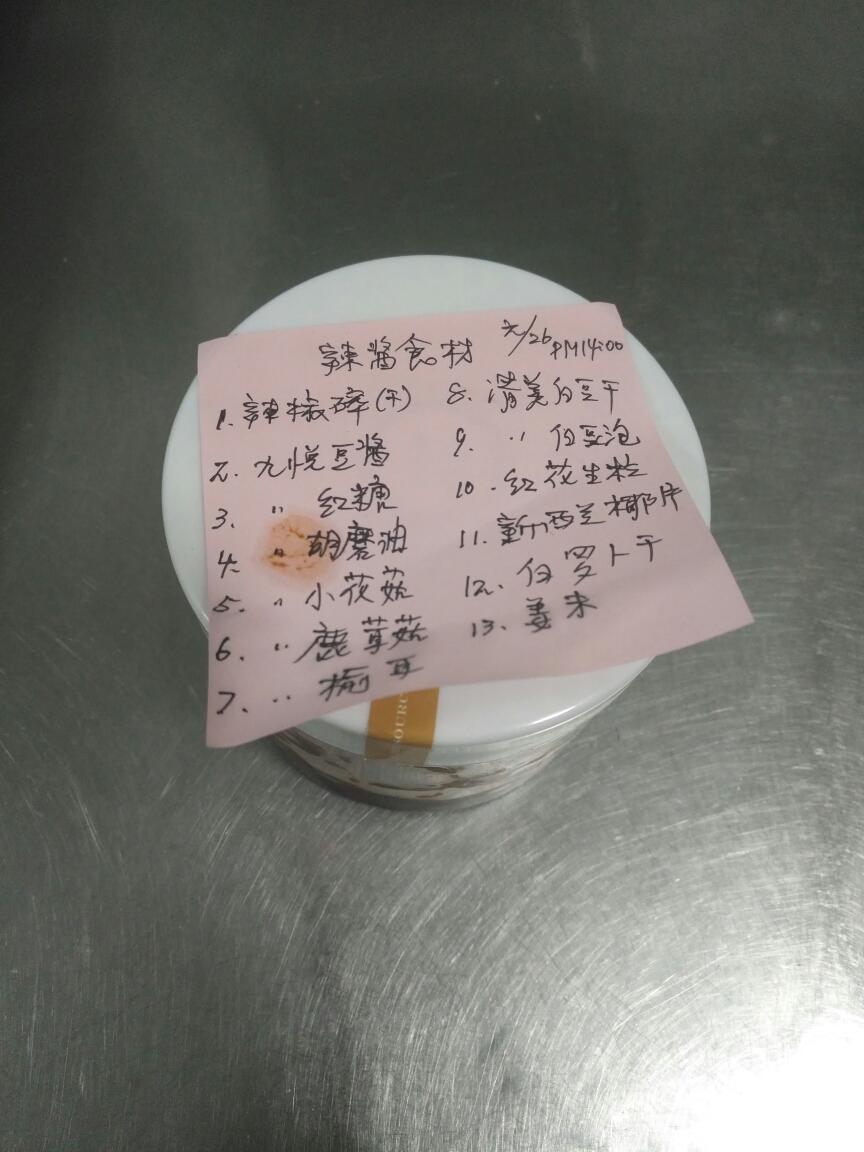 辣醬食材 元/26 PM14:00
1. 辣椒碎(干)
2. 九悦豆醬
3. 〃 红糖
4. 〃 胡磨油
5. 〃 小花菇
6. 〃 鹿草菇
7. 〃 木耳
8. 清美白豆干
9. 〃 白豆泡
10. 红花生粒
11. 新西兰椰片
12. 白罗卜干
13. 姜末
SOURC